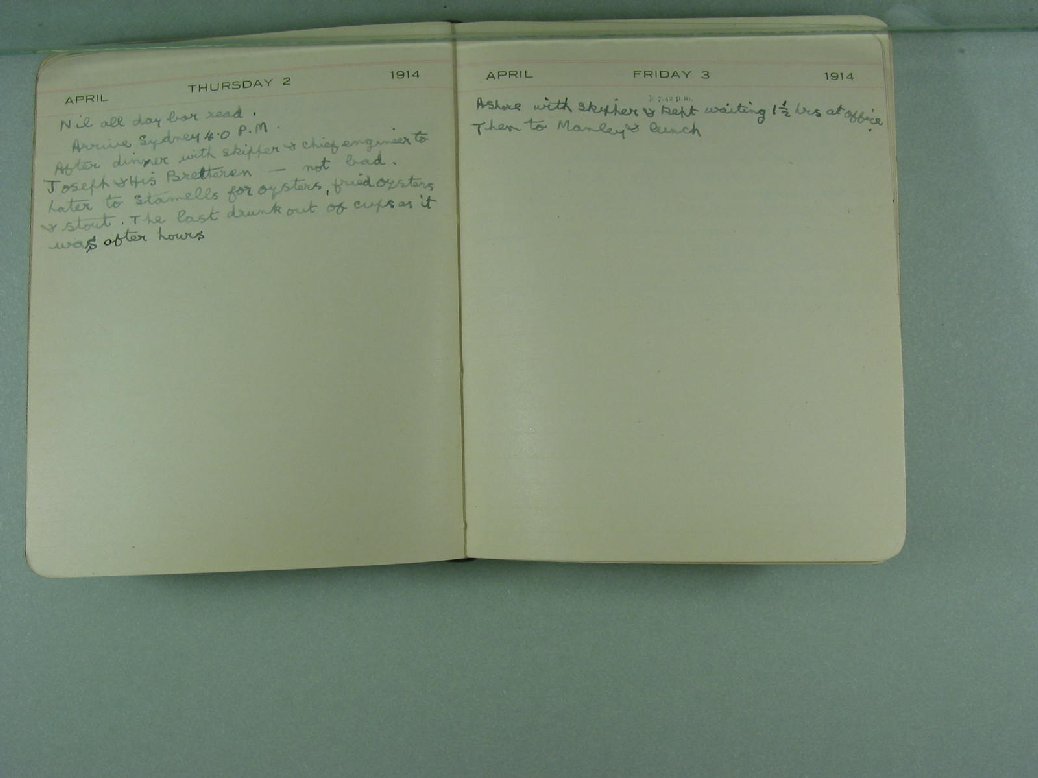 APRIL THURSDAY 2 1914
Nil all day bar read.
Arrive Sydney 4.0 P.M.
After dinner with skipper & chief engineer to
Joseph & His Bretteren — not bad.
Later to Stamells for oysters, fried oysters
& stout. The last drunk out of cups as it
was after hours
APRIL FRIDAY 3 1914
Ashore with skipher & kept waiting 1½ hrs at office.
Then to Manley & lunch